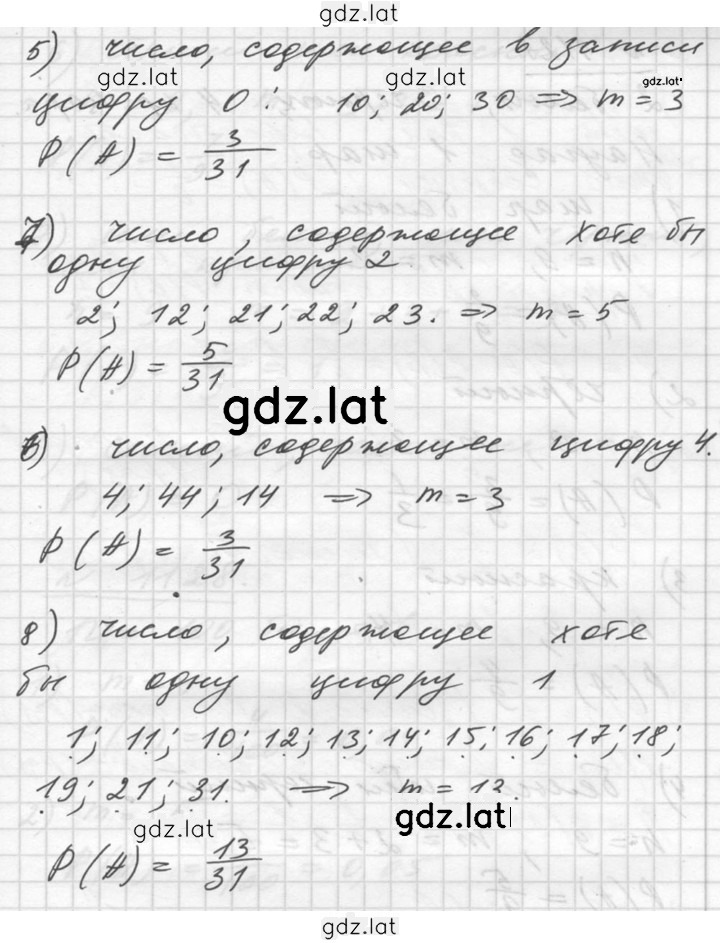 gdz.lat
5) число, содержащее в записи
gdz.lat gdz.lat gdz.lat
цифру 0: 10; 20; 30 => m = 3
P(A) = 3/31
7) число, содержащее хотя бы
одну цифру 2.
2; 12; 21; 22; 23. => m = 5
P(A) = 5/31
gdz.lat
6) число, содержащее цифру 4.
4; 44; 14 => m = 3
P(A) = 3/31
8) число, содержащее хотя
бы одну цифру 1
1; 11; 10; 12; 13; 14; 15; 16; 17; 18;
19; 21; 31. => m = 13.
gdz.lat gdz.lat
P(A) = 13/31
gdz.lat